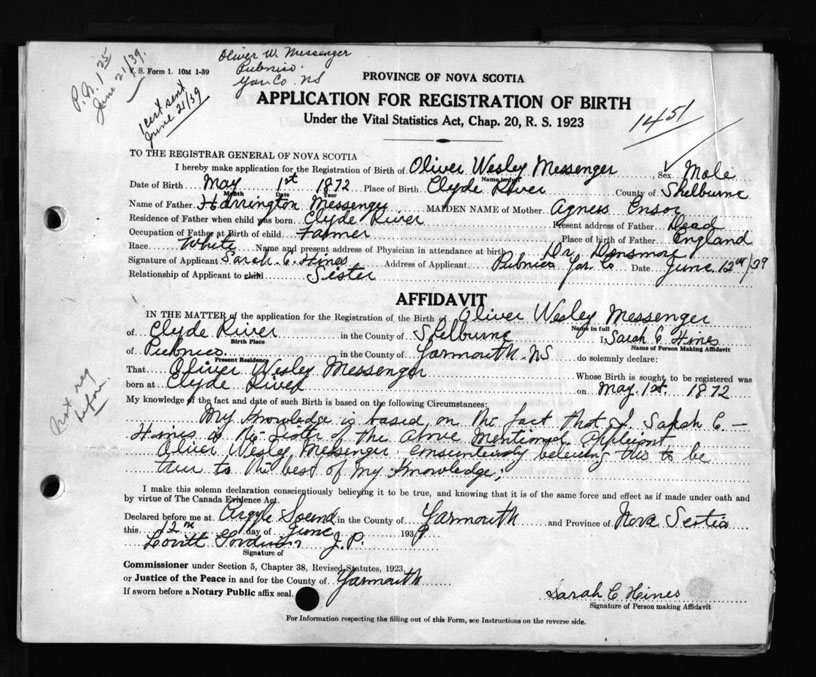 P.N. 1 25
June 21/39.
V. S. Form 1. 10M 1-39
Oliver W. Messenger
Pubnico.
Yar. Co. NS
1 cert sent
June 21/39
PROVINCE OF NOVA SCOTIA
APPLICATION FOR REGISTRATION OF BIRTH
Under the Vital Statistics Act, Chap. 20, R. S. 1923
1451
TO THE REGISTRAR GENERAL OF NOVA SCOTIA
I hereby make application for the Registration of Birth of Oliver Wesley Messenger Sex Male
Name in full
Date of Birth May 1st 1872 Place of Birth Clyde River County of Shelburne
Month Date Year
Name of Father Harrington Messenger MAIDEN NAME of Mother Agness Ensor
Residence of Father when child was born Clyde River Present address of Father Dead
Occupation of Father at Birth of child Farmer Place of Birth of father England
Race White Name and present address of Physician in attendance at birth Dr. Densmore
Signature of Applicant Sarah. C. Hines Address of Applicant Pubnico Yar. Co Date June 12th/39
Relationship of Applicant to child Sister
AFFIDAVIT
IN THE MATTER of the application for the Registration of the Birth of Oliver Wesley Messenger
Name in full
of Clyde River in the County of Shelburne I, Sarah C Hines
Birth Place Name of Person Making Affidavit
of Pubnico in the County of Yarmouth. NS do solemnly declare:
Present Residency
That Oliver Wesley Messenger Whose Birth is sought to be registered was
born at Clyde River on May. 1st. 1872
My knowledge of the fact and date of such Birth is based on the following Circumstances:
Not reg
before
My Knowledge is based on the fact that I. Sarah C. –
Hines is the Sister of the above mentioned applicant
Oliver Wesley Messenger believing this to be
true to the best of my Knowledge;
I make this solemn declaration conscientiously believing it to be true, and knowing that it is of the same force and effect as if made under oath and
by virtue of The Canada Evidence Act.
Declared before me at Argyle Sound in the County of Yarmouth and Province of Nova Scotia
this 12th day of June 1939
J.P.
Signature of
Commissioner under Section 5, Chapter 38, Revised Statutes, 1923,
or Justice of the Peace in and for the County of Yarmouth
If sworn before a Notary Public affix seal.
Sarah C Hines
Signature of Person making Affidavit
For Information respecting the filling out of this Form, see Instructions on the reverse side.